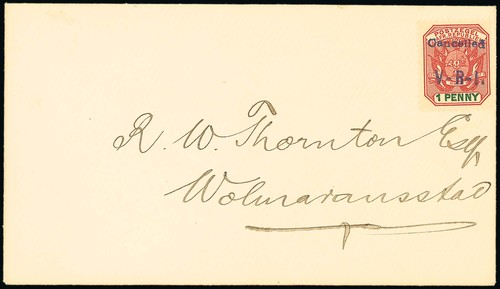 POSTZEGEL
Z.AFR.REPUBLIEK
Cancelled
V-R-I.
1 PENNY
R. W. Thornton Esq
Wolmaransstad